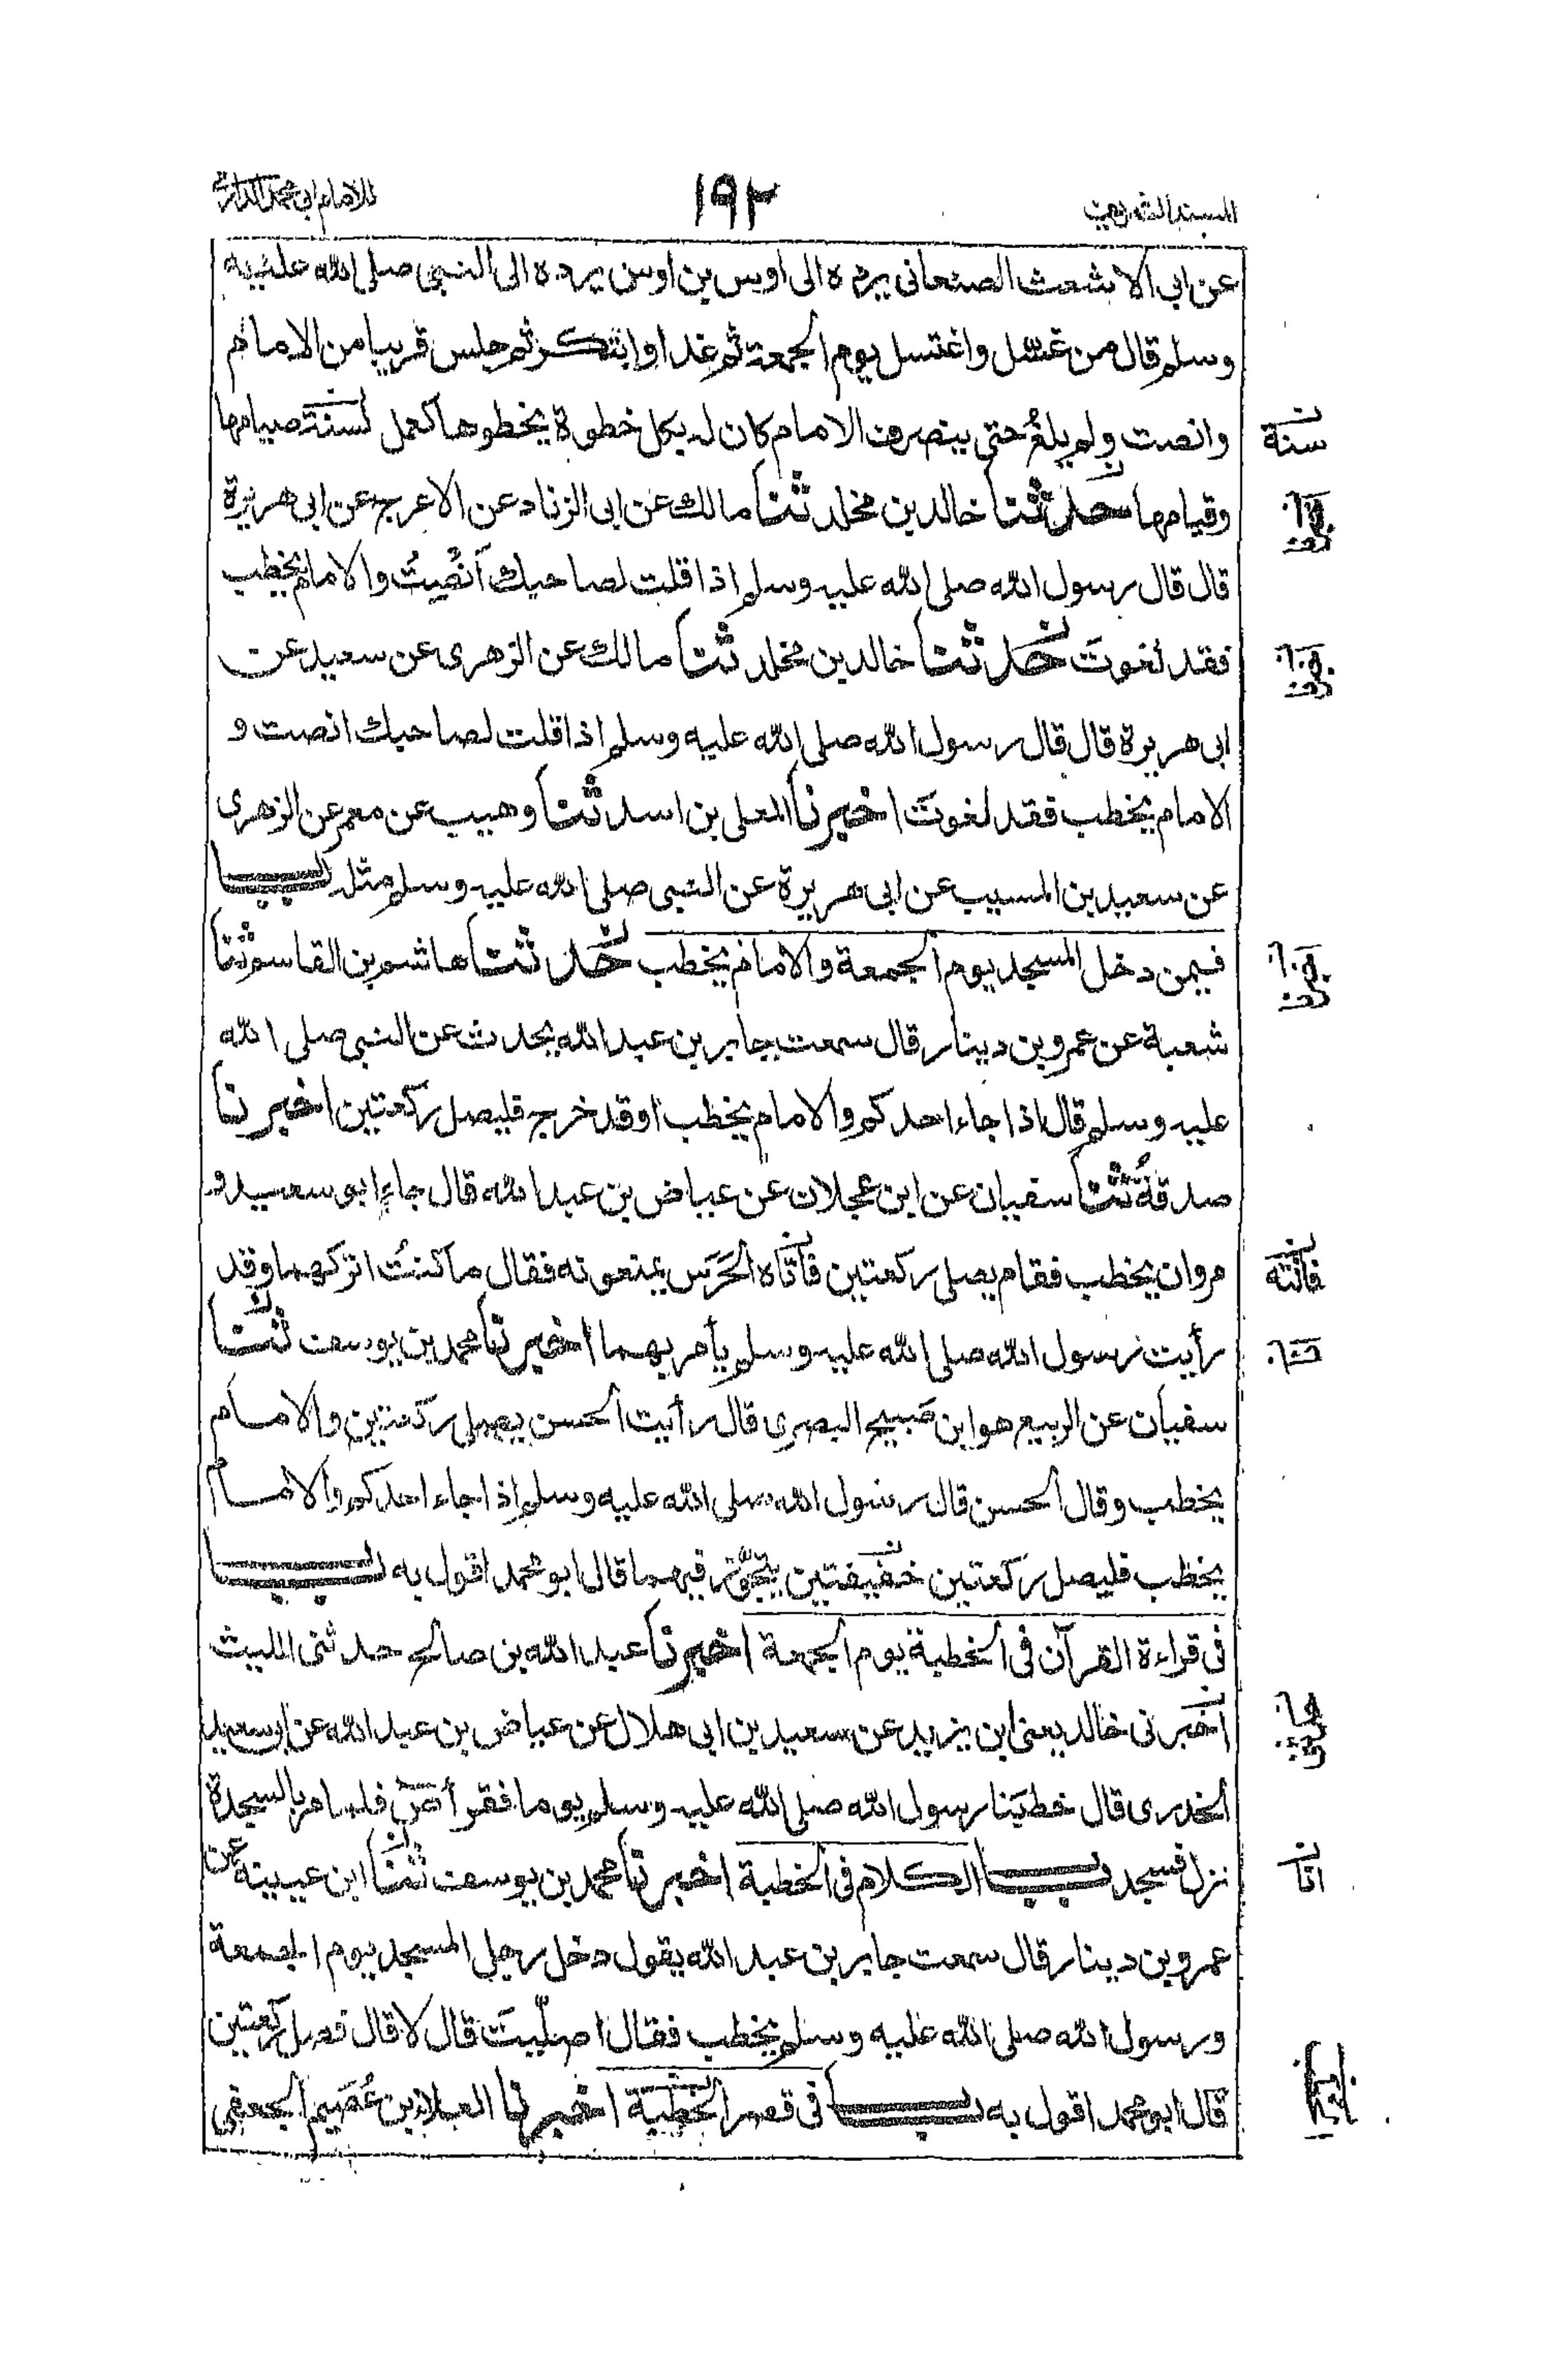 المسند الشريف
١٩٢
للامام ابى محمد الدارمى
عن ابى الاشعث الصنعانى يرده الى اوس بن اوس يرده الى النبى صلى الله عليه
وسلم قال من غسّل واغتسل يوم الجمعة ثم غدا وابتكر ثم جلس قريبا من الامام
وانصت ولم يلغُ حتى ينصرف الامام كان له بكل خطوة يخطوها كعمل لسنة صيامها
سنة
وقيامها حدثنا خالد بن مخلد ثنا مالك عن ابى الزناد عن الاعرج عن ابى هريرة
قال قال رسول الله صلى الله عليه وسلم اذا قلت لصاحبك أَنْصِتْ والامام يخطب
فقد لغوتَ حدثنا خالد بن مخلد ثنا مالك عن الزهرى عن سعيد عن
ابى هريرة قال قال رسول الله صلى الله عليه وسلم اذا قلت لصاحبك انصت و
الامام يخطب فقد لغوتَ اخبرنا المعلى بن اسد ثنا وهيب عن معمر عن الزهرى
عن سعيد بن المسيب عن ابى هريرة عن النبى صلى الله عليه وسلم مثله باب
فيمن دخل المسجد يوم الجمعة والامام يخطب حدثنا هاشم بن القاسم ثنا
شعبة عن عمرو بن دينار قال سمعت جابر بن عبد الله يحدث عن النبى صلى الله
عليه وسلم قال اذا جاء احدكم والامام يخطب اوقد خرج فليصل ركعتين اخبرنا
صدقةُ ثنا سفيان عن ابن عجلان عن عياض بن عبد الله قال جاء ابو سعيد و
مروان يخطب فقام يصلى ركعتين فأتاه الحَرَس يمنعونه فقال ما كنتُ اتركهما وقد
فاتته
رأيت رسول الله صلى الله عليه وسلم يأمر بهما اخبرنا محمد بن يوسف ثنا
سفيان عن الربيع هو ابن صَبيح البصرى قال رأيت الحسن يصلى ركعتين والامام
يخطب وقال الحسن قال رسول الله صلى الله عليه وسلم اذا جاء احدكم والامام
يخطب فليصل ركعتين خفيفتين يتجوّز فيهما قال ابو محمد اقول به باب
فى قراءة القرآن فى الخطبة يوم الجمعة اخبرنا عبد الله بن صالح حدثنى الليث
اخبرنى خالد يعنى ابن يزيد عن سعيد بن ابى هلال عن عياض بن عبد الله عن ابى سعيد
الخدرى قال خطبَنا رسول الله صلى الله عليه وسلم يوما فقرأ صٓ فلما مر بالسجدة
نزل فسجد باب الكلام فى الخطبة اخبرنا محمد بن يوسف ثنا ابن عيينة عن
انا
عمرو بن دينار قال سمعت جابر بن عبد الله يقول دخل رجل المسجد يوم الجمعة
ورسول الله صلى الله عليه وسلم يخطب فقال اصلّيتَ قال لا قال فصل ركعتين
قال ابو محمد اقول به باب فى قصر الخطبة اخبرنا العلاء بن عُصَيم الجعفى